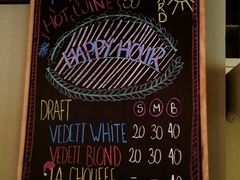 HOT WINES
HAPPY HOUR
DRAFT S M B
VEDETT WHITE 20 30 40
VEDETT BLOND 20 30 40
LA CHOUFFE